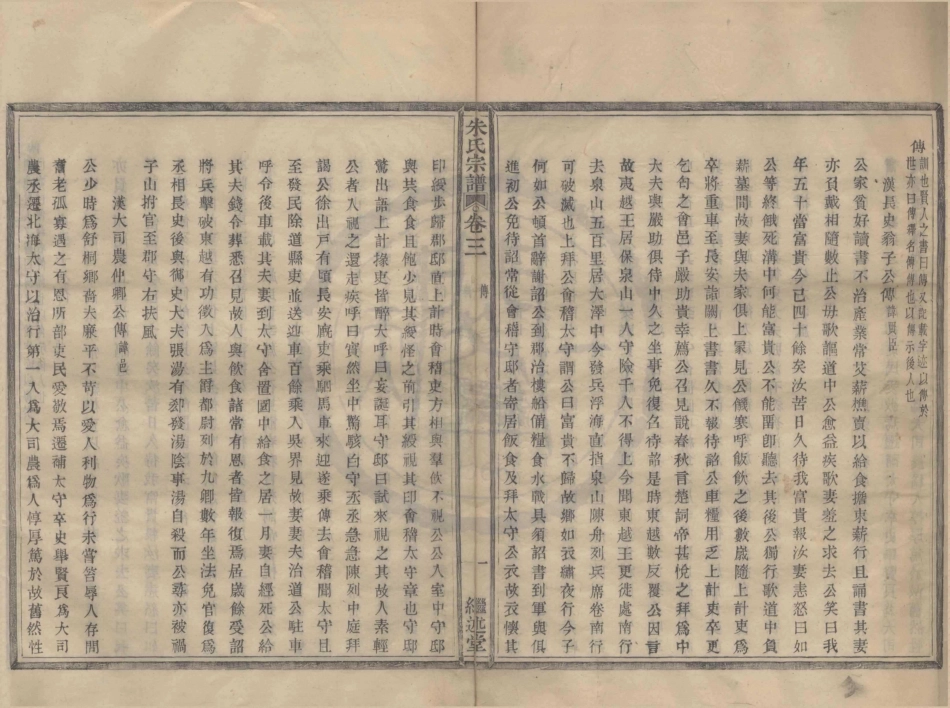 傳 訓也賢人之書曰傳又記載字迹以傳於
世亦曰傳釋名傳傳也以傳示後人也
漢長史翁子公傳 諱買臣
公家貧好讀書不治產業常艾薪樵賣以給食擔束薪行且誦書其妻
亦負戴相隨數止公毋歌謳道中公愈益疾歌妻羞之求去公笑曰我
年五十當富貴今已四十餘矣汝苦日久待我富貴報汝妻恚怒曰如
公等終餓死溝中何能富貴公不能留卽聽去其後公獨行歌道中負
薪墓間故妻與夫家俱上冢見公饑寒呼飯飲之後數歲隨上計吏爲
卒將重車至長安詣闕上書書久不報待詔公車糧用乏上計吏卒更
乞匄之會邑子嚴助貴幸薦公召見說春秋言楚詞帝甚悅之拜爲中
大夫與嚴助俱侍中久之坐事免復召待詔是時東越數反覆公因言
故東越王居保泉山一人守險千人不得上今聞東越王更徙處南行
去泉山五百里居大澤中今發兵浮海直指泉山陳舟列兵席卷南行
可破滅也上拜公會稽太守謂公曰富貴不歸故鄉如衣繡夜行今子
何如公頓首辭謝詔公到郡治樓船備糧食水戰具須詔書到軍與俱
進初公免待詔常從會稽守邸者寄居飯食及拜太守公衣故衣懷其
朱氏宗譜 卷三 傳 一 繼述堂
印綬步歸郡邸直上計時會稽吏方相與羣飲不視公公入室中守邸
與共食食且飽少見其綬守邸怪之前引其綬視其印會稽太守章也守邸
驚出語上計掾吏皆醉大呼曰妄誕耳守邸曰試來視之其故人素輕
公者入視之還走疾呼曰實然坐中驚駭白守丞急陳列中庭拜
謁公徐出戶有頃長安廄吏乘駟馬車來迎遂乘傳去會稽聞太守且
至發民除道縣吏並送迎車百餘乘入吳界見故妻妻夫治道公駐車
呼令後車載其夫妻到太守舍置園中給食之居一月妻自經死公給
其夫錢令葬悉召見故人與飲食諸常有恩者皆報復焉居歲餘受詔
將兵擊破東越有功徵入爲主爵都尉列於九卿數年坐法免官復爲
丞相長史後與御史大夫張湯有郤發湯陰事湯自殺而公尋亦被禍
子山拊官至郡守右扶風
漢大司農仲卿公傳 諱邑
公少時爲舒桐鄉嗇夫廉平不苛以愛人利物爲行未嘗笞辱人存問
耆老孤寡遇之有恩所部吏民愛敬焉遷補太守卒史舉賢良爲大司
農丞遷北海太守以治行第一入爲大司農爲人惇厚篤於故舊然性